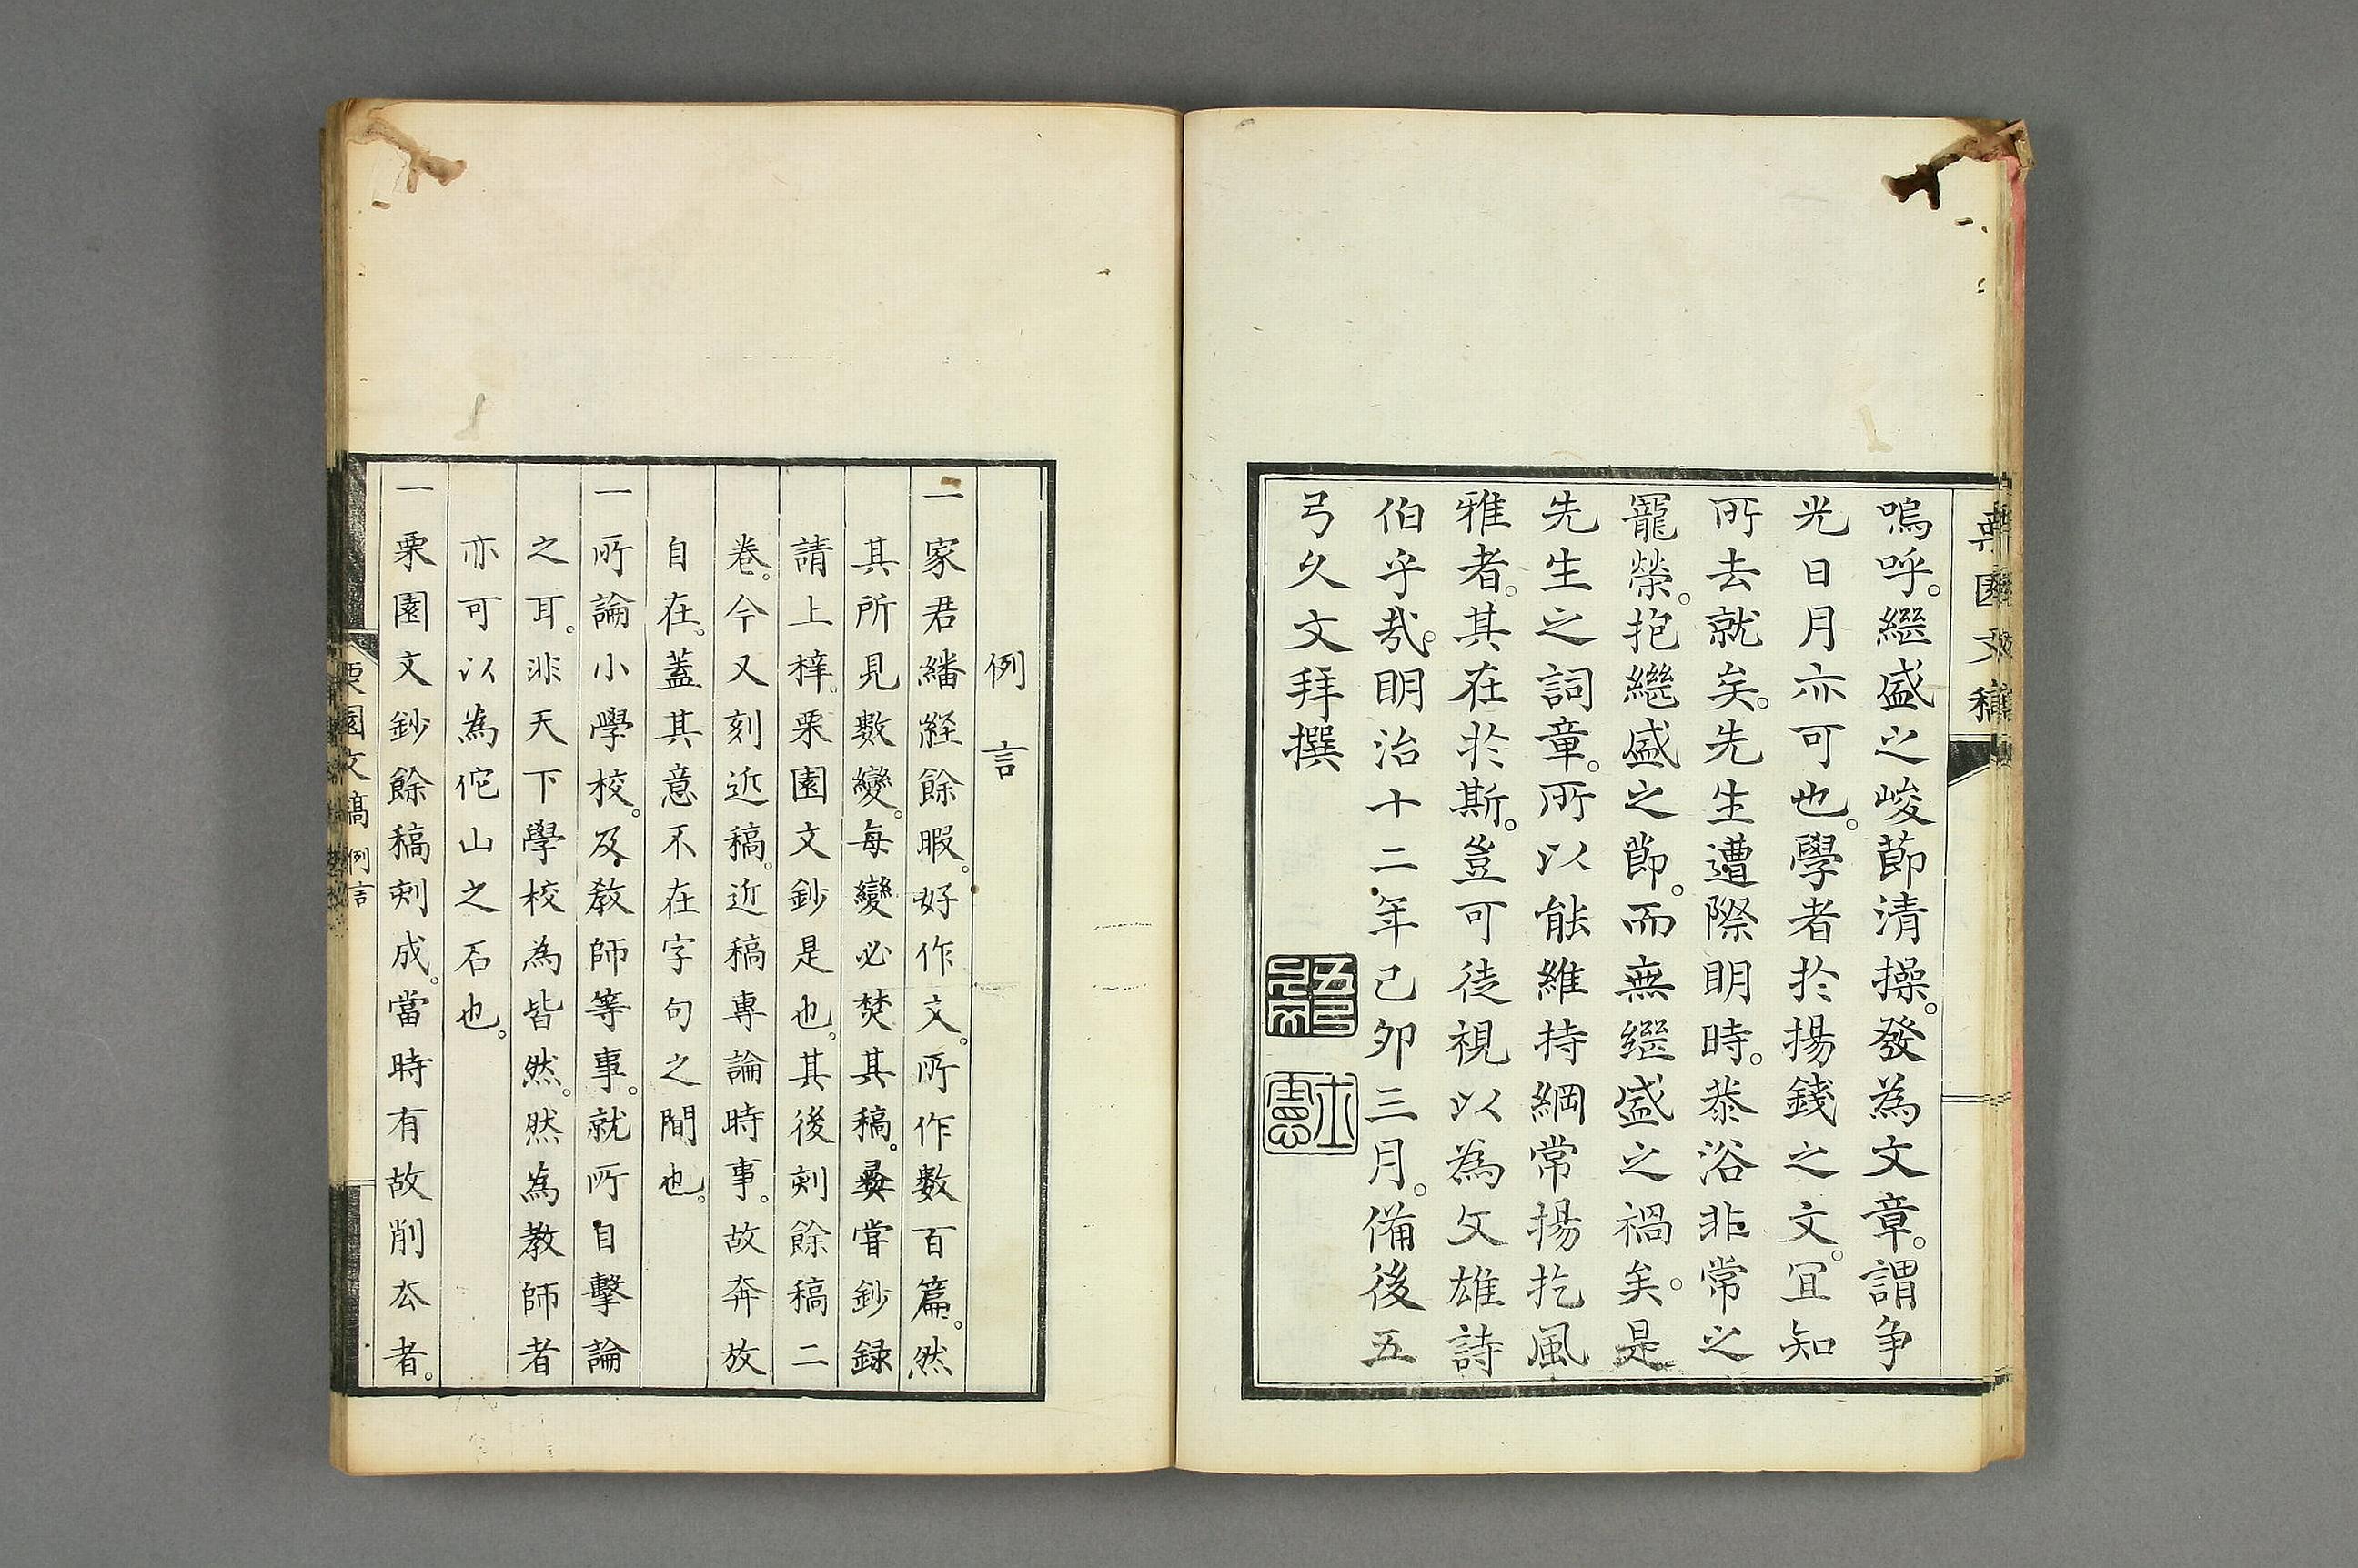 栗園文稿
嗚呼。繼盛之峻節清操。發為文章。謂爭
光日月亦可也。學者於揚錢之文。宜知
所去就矣。先生遭際明時。恭浴非常之
寵榮。抱繼盛之節。而無繼盛之禍矣。是
先生之詞章。所以能維持綱常揚扢風
雅者。其在於斯。豈可徒視以為文雄詩
伯乎哉。明治十二年己卯三月。備後五
弓久文拜撰
例言
一家君繙經餘暇。好作文。所作數百篇。然
其所見數變。每變必焚其稿。彜嘗鈔録
請上梓。栗園文鈔是也。其後刻餘稿二
卷。今又刻近稿。近稿專論時事。故奔放
自在。蓋其意不在字句之間也。
一所論小學校。及教師等事。就所自擊論
之耳。非天下學校為皆然。然為教師者
亦可以為佗山之石也。
一栗園文鈔餘稿刻成。當時有故削去者。
栗園文稿 例言